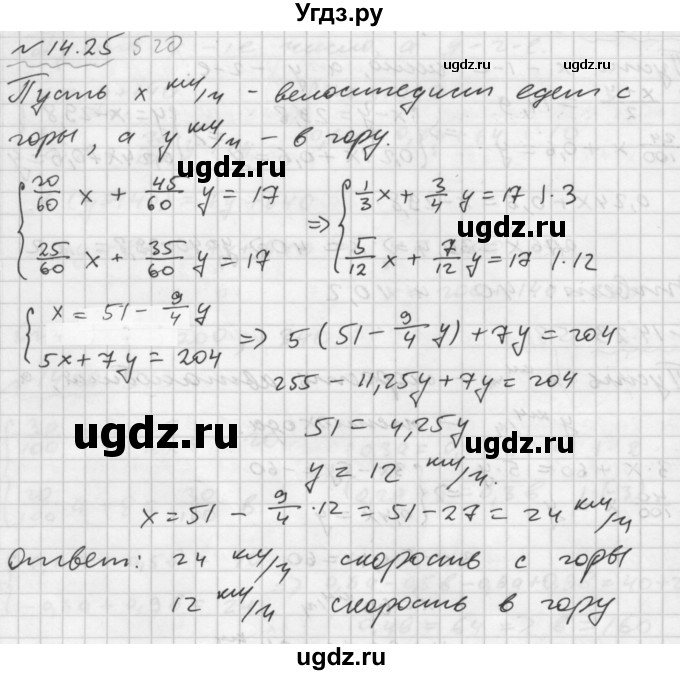 Угдз.ру
№ 14.25 520
ugdz.ru ugdz.ru
Пусть x км/ч - велосипедист едет с
горы, а y км/ч - в гору.
ugdz.ru
{ 20/60 x + 45/60 y = 17 => { 1/3 x + 3/4 y = 17 | · 3
ugdz.ru
25/60 x + 35/60 y = 17 5/12 x + 7/12 y = 17 | · 12
{ x = 51 - 9/4 y => 5 (51 - 9/4 y) + 7y = 204
5x + 7y = 204
255 - 11,25y + 7y = 204
ugdz.ru
51 = 4,25y
ugdz.ru
y = 12 км/ч.
x = 51 - 9/4 · 12 = 51 - 27 = 24 км/ч
Ответ: 24 км/ч скорость с горы
12 км/ч скорость в гору
ugdz.ru ugdz.ru
ugdz.ru